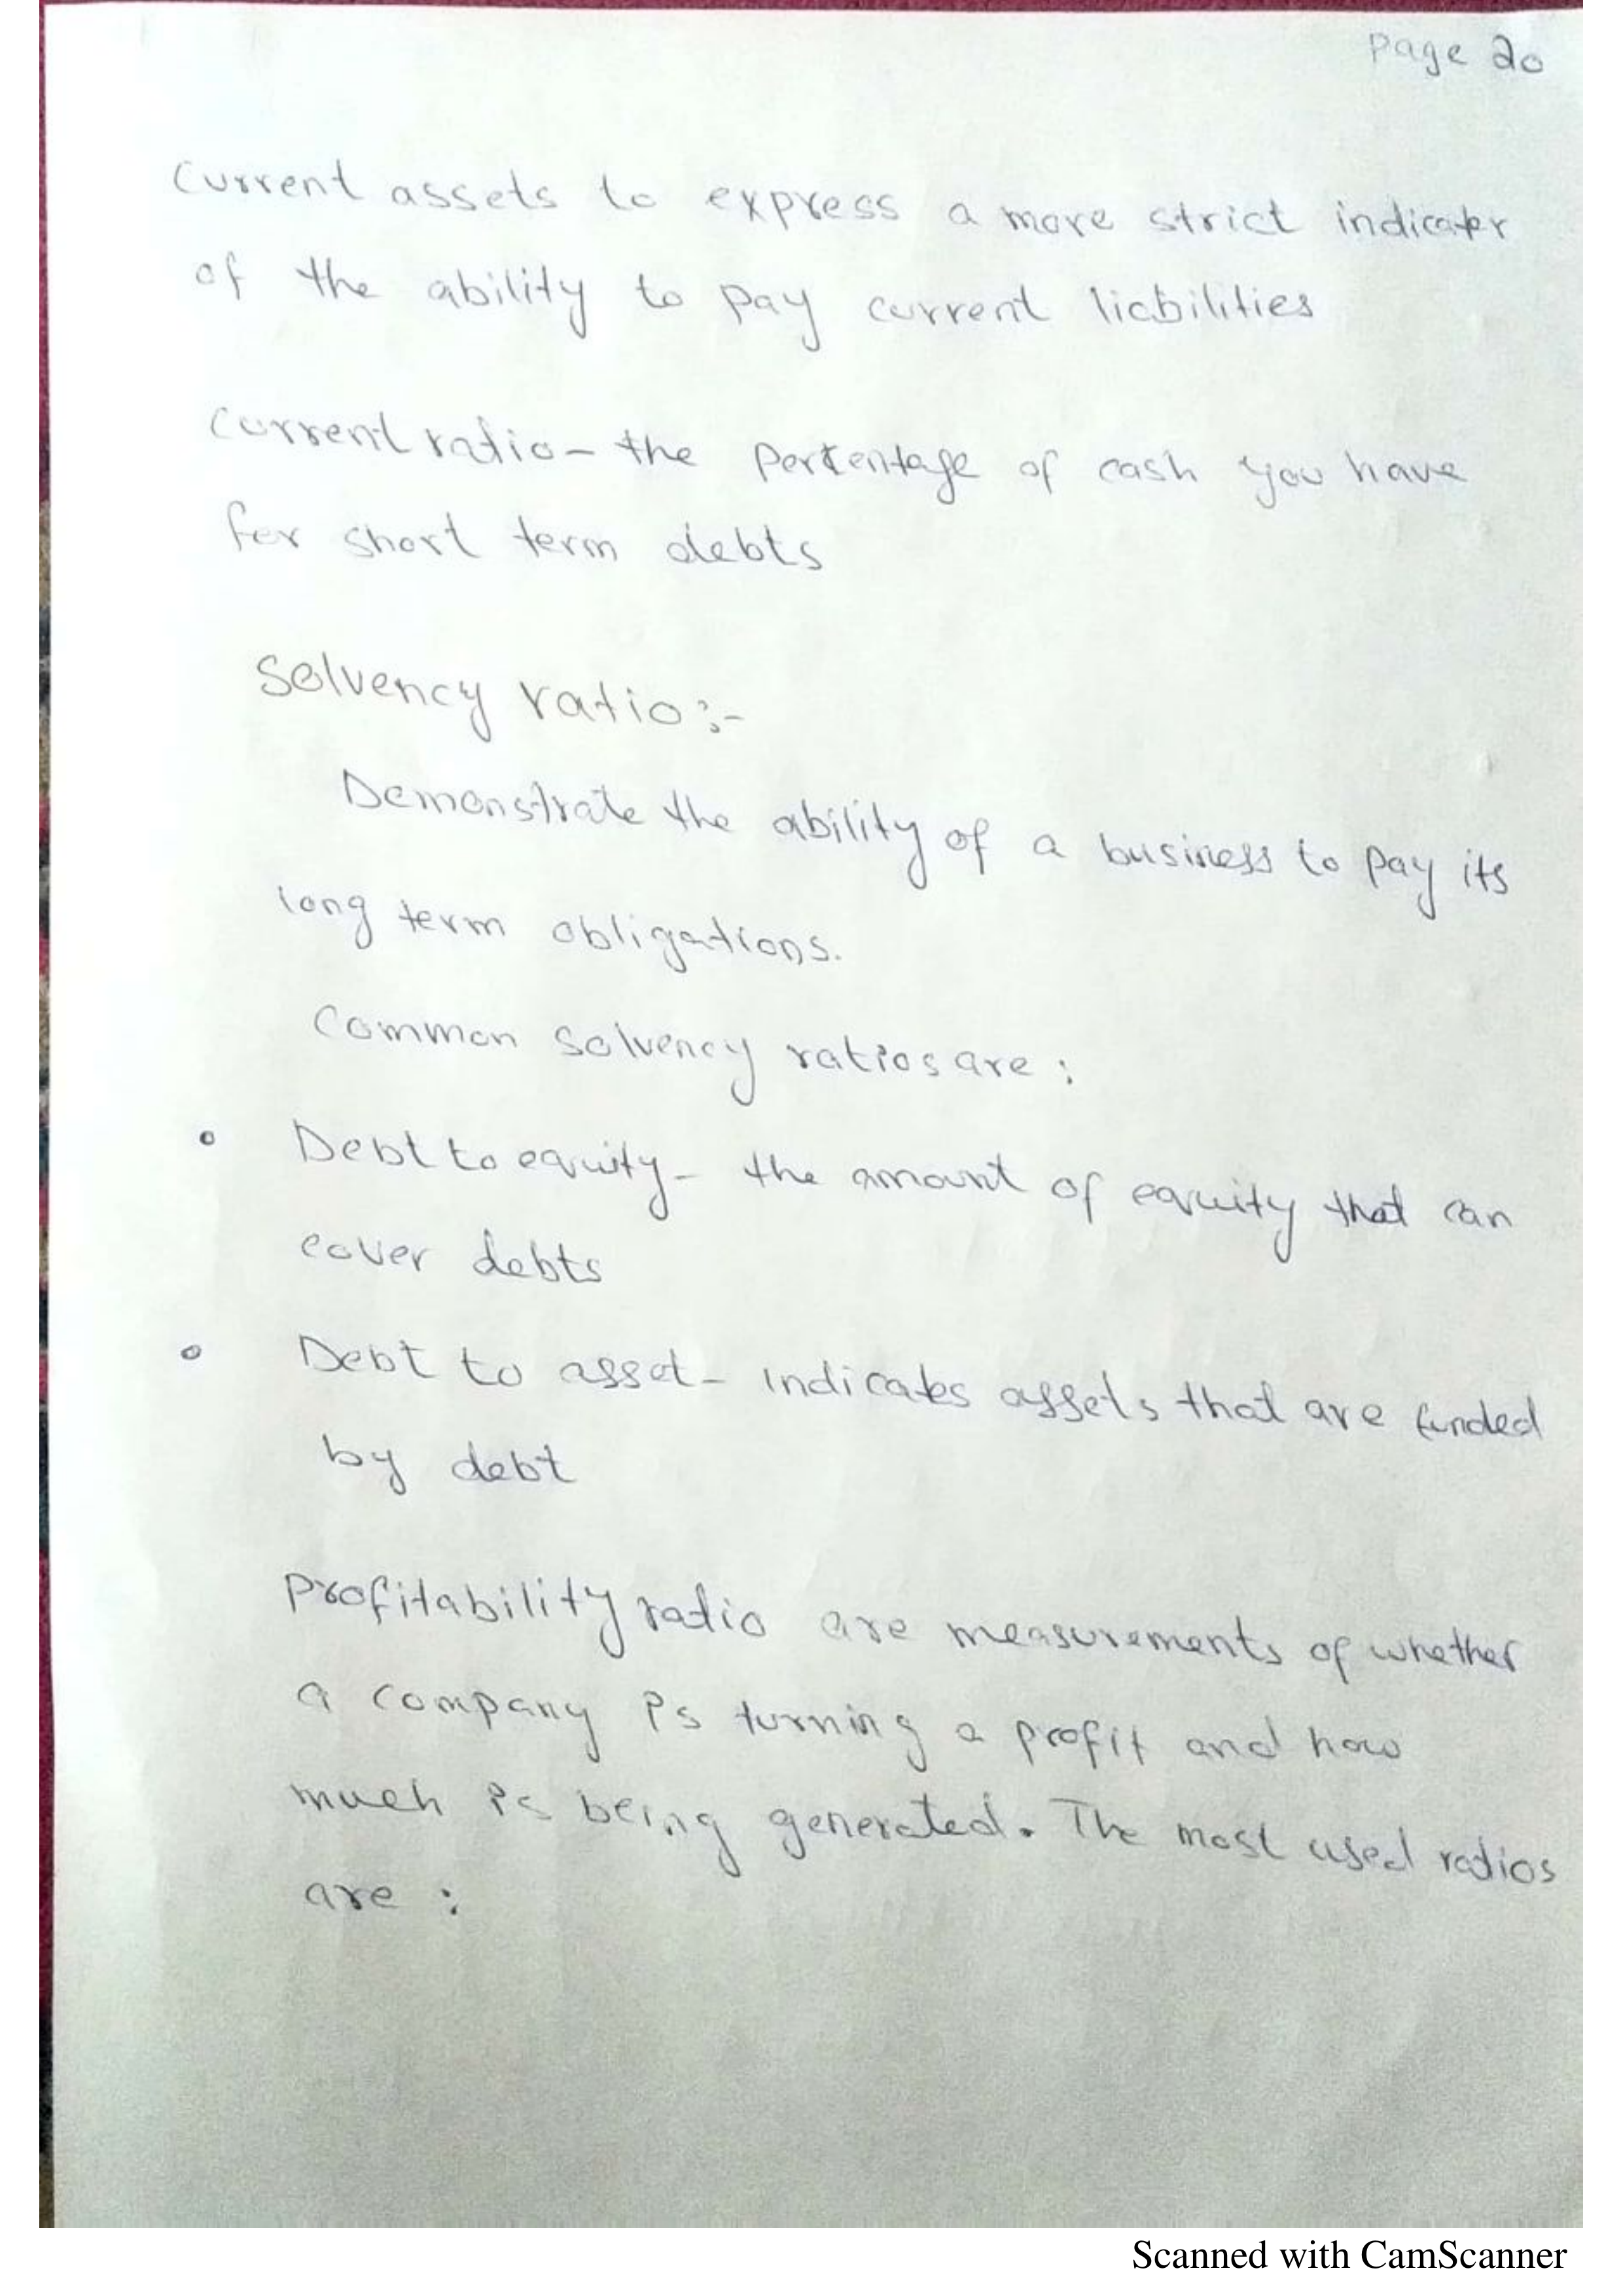 Page 20
Current assets to express a more strict indicator
of the ability to pay current liabilities
Current ratio - the percentage of cash you have
for short term debts
Solvency ratio :-
Demonstrate the ability of a business to pay its
long term obligations.
Common solvency ratios are :
• Debt to equity - the amount of equity that can
cover debts
• Debt to asset - indicates assets that are funded
by debt
Profitability ratio are measurements of whether
a company is turning a profit and how
much is being generated. The most used ratios
are :
Scanned with CamScanner